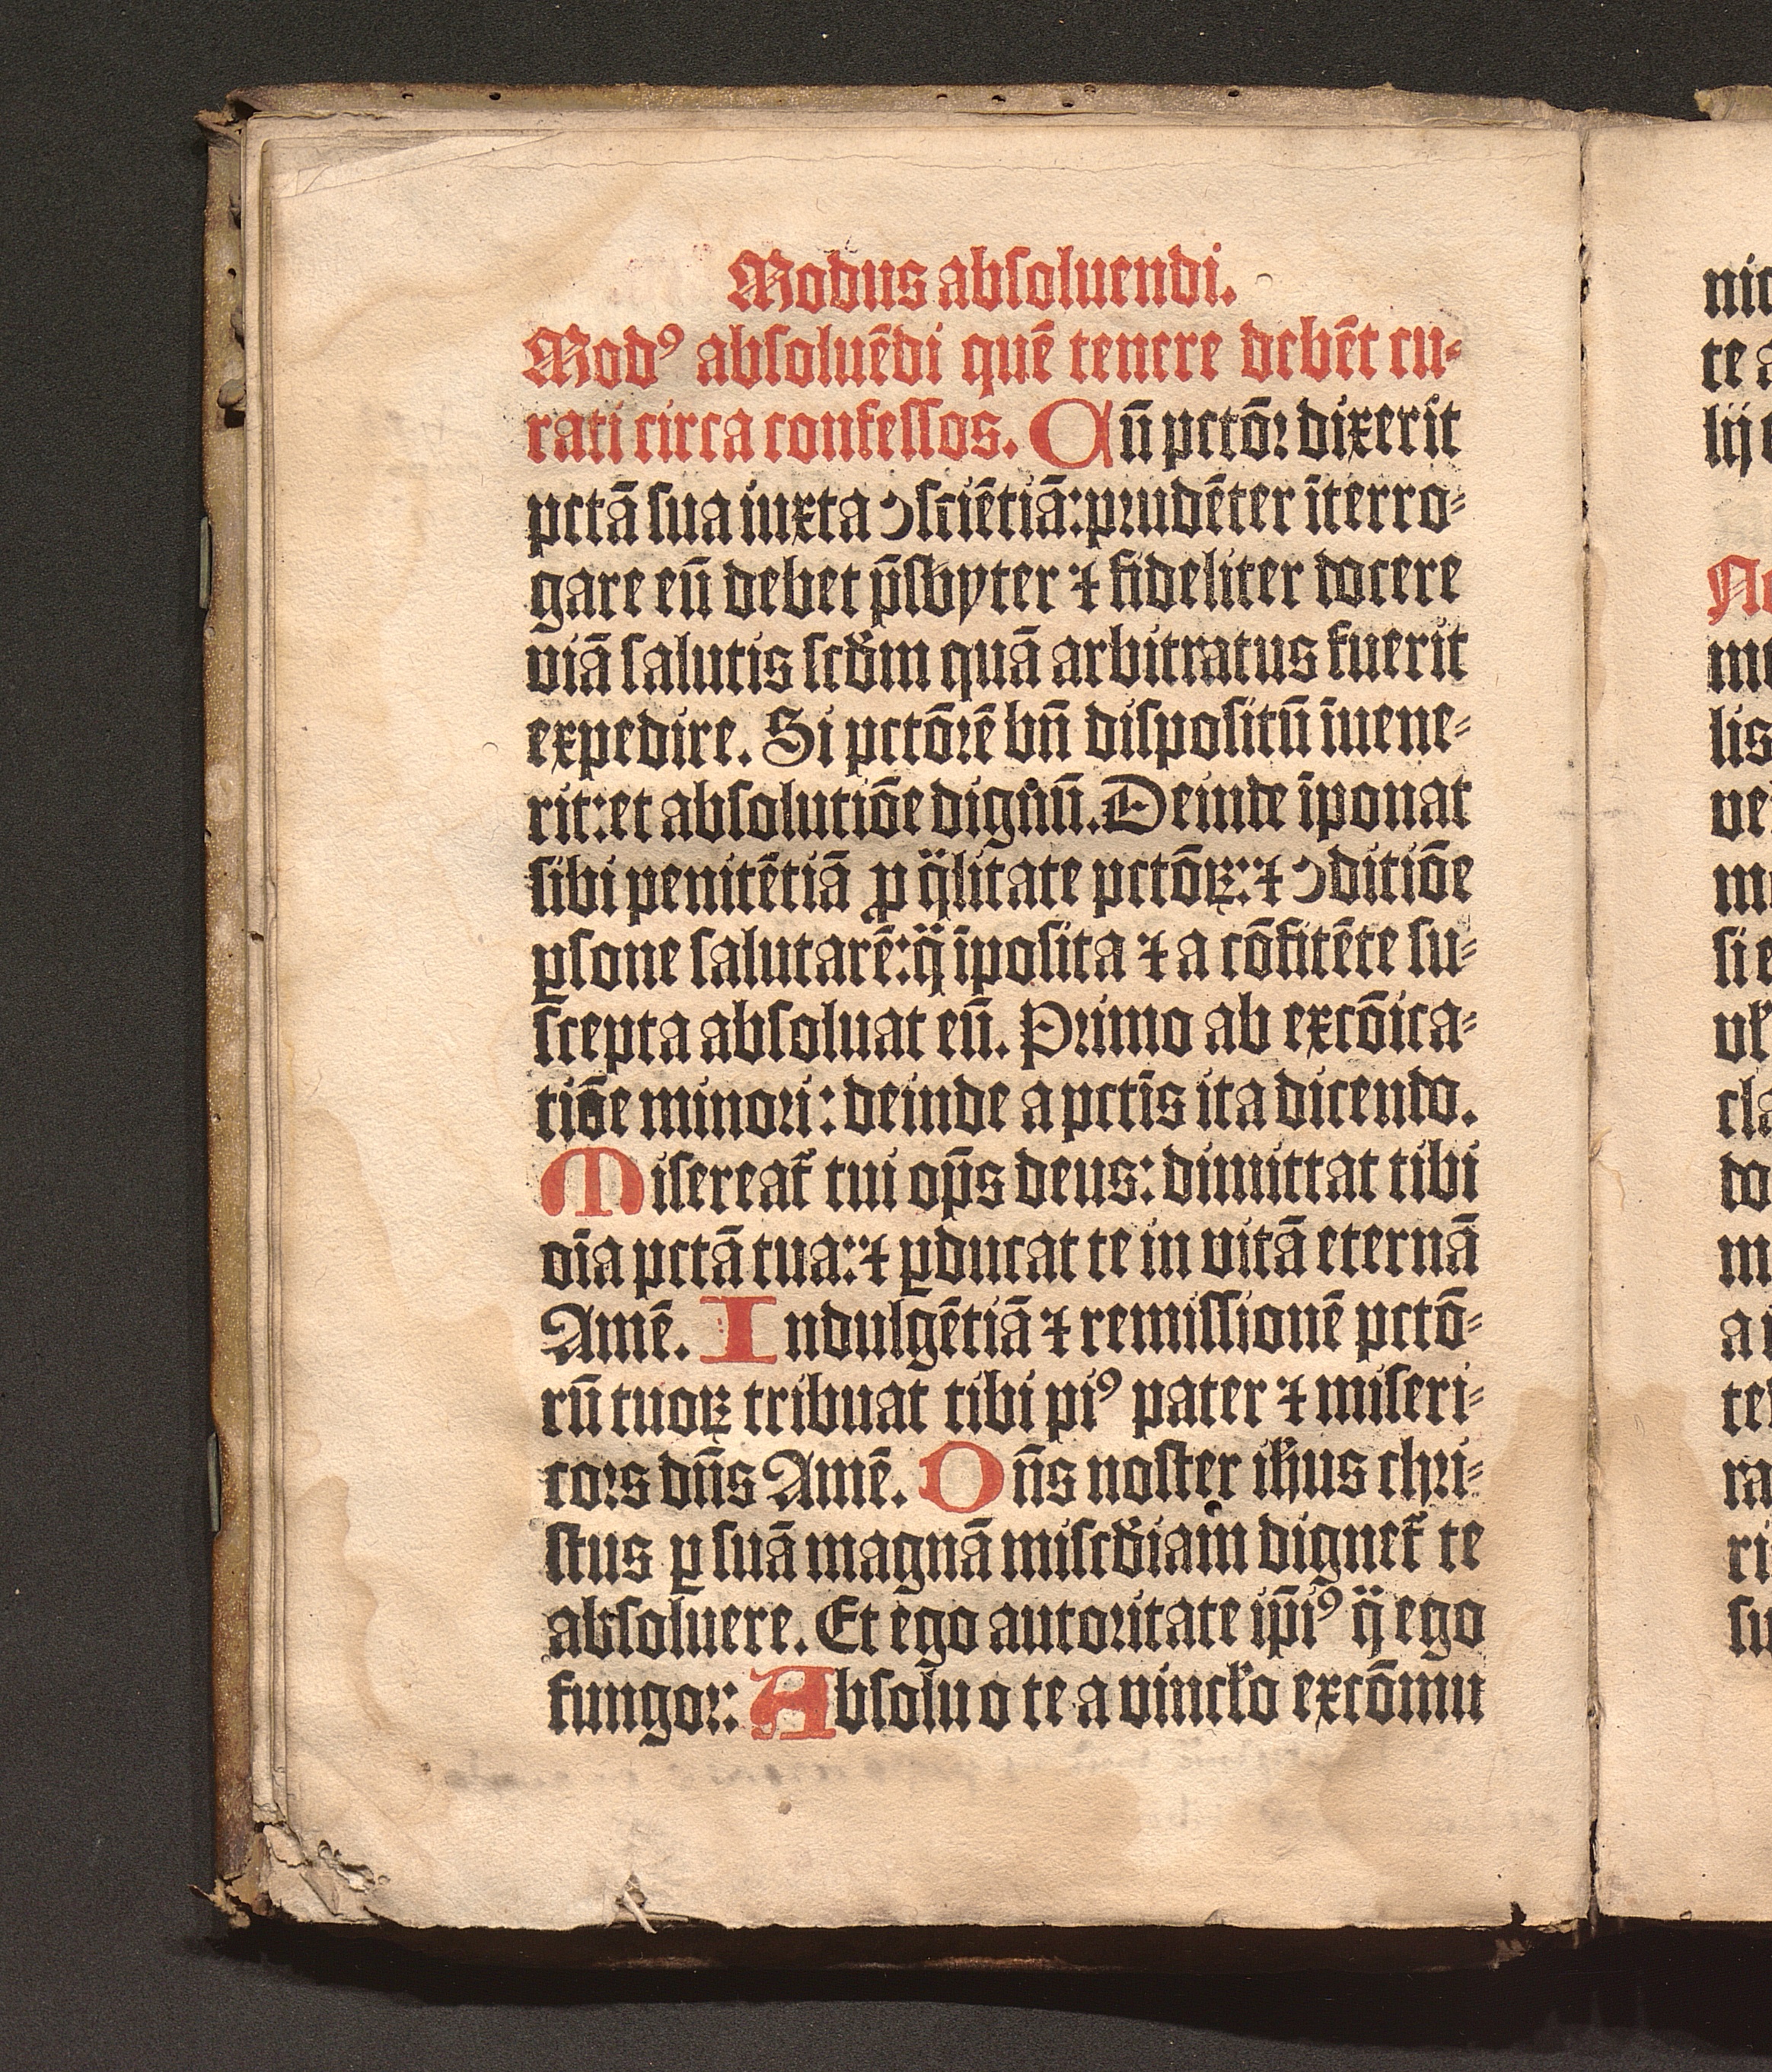 Modus absoluendi.
Modꝰ absoluēdi quē tenere debēt cu⸗
rati circa confessos. Cū pctōꝛ dixerit
pctā sua iuxta ↄsciētiā: pꝛudēter īterro⸗
gare eū debet p̄sbyter ⁊ fideliter docere
viā salutis scd̓m quā arbitratus fuerit
expedire. Si pctōꝛē bn̄ dispositū īuene⸗
rit: et absolutiōe dignū. Deinde īponat
sibi penitētiā ꝓ q̈litate pctōꝝ: ⁊ ↄditiōe
ꝑsone salutarē: q̈ īposita ⁊ a cōfitēte su⸗
scepta absoluat eū. Pꝛimo ab excōica⸗
tiōe minoꝛi: deinde a pctīs ita dicendo.
Misereat᷑ tui op̄s deus: dimittat tibi
oīa pctā tua: ⁊ ꝑducat te in vitā eternā
Amē. Indulgētiā ⁊ remissionē pctō⸗
rū tuoꝝ tribuat tibi piꝰ pater ⁊ miseri⸗
coꝛs dn̄s Amē. Dn̄s noster ih̓us chꝛi⸗
stus ꝑ suā magnā miscd̓iam dignet᷑ te
absoluere. Et ego autoꝛitate ip̄iꝰ q̈ ego
fungoꝛ: Absoluo te a vincl̓o excōmu
nic
te a
lij
No
me
lis
ve
mi
si e
vl̓
cla
do
m
a i
te
ra
ri
su